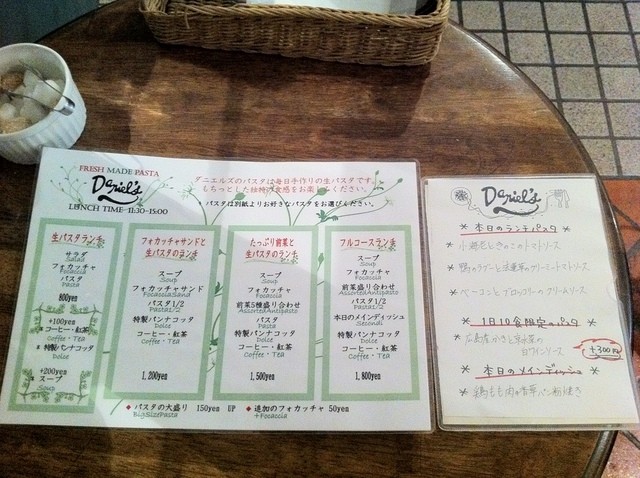 FRESH MADE PASTA
Daniel's
LUNCH TIME 11:30-15:00
ダニエルズのパスタは毎日手作りの生パスタです。
もちっとした独特の食感をお楽しみください。
パスタは別紙よりお好きなパスタをお選びください。
生パスタランチ
サラダ
Salad
フォカッチャ
Focaccia
パスタ
Pasta
800yen
+100yen
コーヒー・紅茶
Coffee・Tea
特製パンナコッタ
Dolce
+200yen
スープ
Soup
フォカッチャサンドと
生パスタのランチ
スープ
Soup
フォカッチャサンド
FocacciaSand
パスタ1/2
Pasta1/2
特製パンナコッタ
Dolce
コーヒー・紅茶
Coffee・Tea
1,200yen
たっぷり前菜と
生パスタのランチ
スープ
Soup
フォカッチャ
Focaccia
前菜5種盛り合わせ
AssortedAntipasto
パスタ
Pasta
特製パンナコッタ
Dolce
コーヒー・紅茶
Coffee・Tea
1,500yen
フルコースランチ
スープ
Soup
フォカッチャ
Focaccia
前菜盛り合わせ
AssortedAntipasto
パスタ1/2
Pasta1/2
本日のメインディッシュ
Secondi
特製パンナコッタ
Dolce
コーヒー・紅茶
Coffee・Tea
1,800yen
◆ パスタの大盛り 150yen UP
BigSizePasta
◆ 追加のフォカッチャ 50yen
+Focaccia
Daniel's
* 本日のランチパスタ *
* 小海老ときのこのトマトソース
* 鴨のラグーと法蓮草のクリーミートマトソース
* ベーコンとブロッコリーのクリームソース
* 1日10食限定のパスタ *
* 広島産かきと
白ワインソース
+300円
* 本日のメインディッシュ *
* 鶏もも肉の香草パン粉焼き